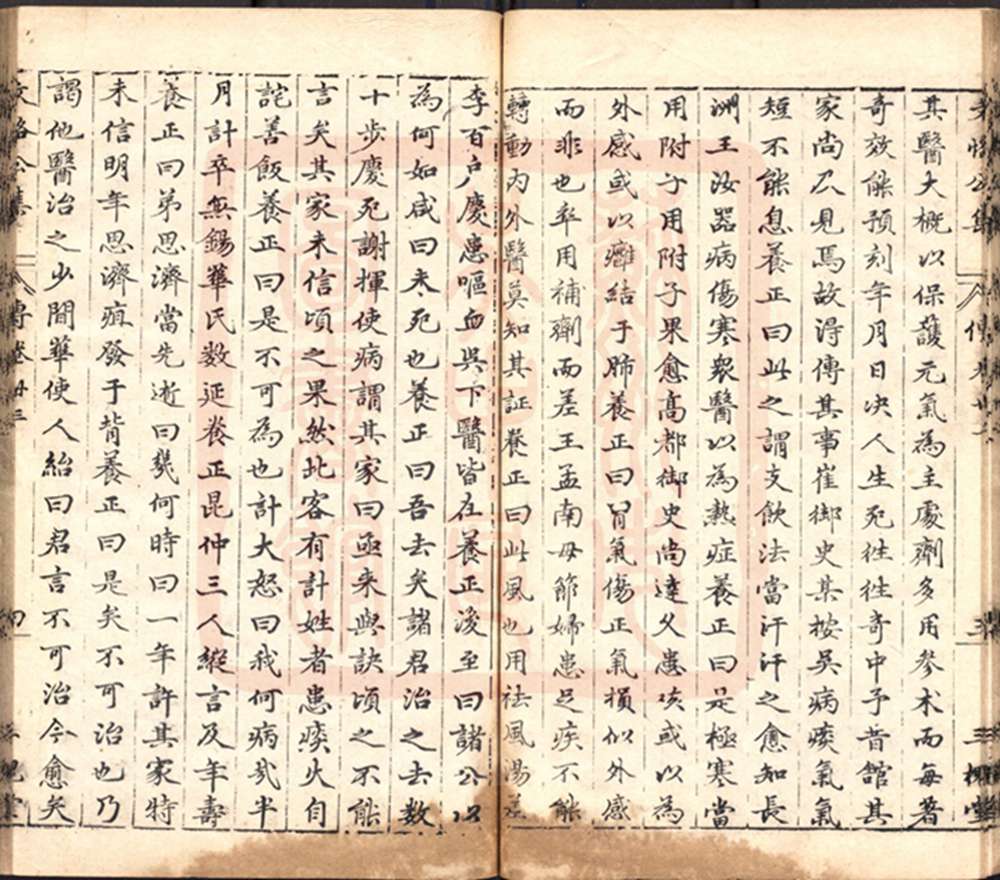 其醫大概以保護元氣為主處劑多用參术而每著
奇效能預刻年月日决人生死徃徃奇中予昔館其
家尚及見焉故淂傳其事崔御史某按吳病痰氣氣
短不能息養正曰此之謂支飲法當汗汗之愈知長
洲王汝器病傷寒衆醫以為熱症養正曰是極寒當
用附子用附子果愈高都御史尚達父患痰或以為
外感或以癰結于肺養正曰胃氣傷正氣損似外感
而非也卒用補劑而差王孟南母節婦患足疾不能
轉動内外醫莫知其証養正曰此風也用祛風湯差
李百户慶患嘔血吳下醫皆在養正後至曰諸公以
為何如咸曰未死也養正曰吾去矣諸君治之去数
十步慶死謝揮使病謂其家曰亟来與訣頃之不能
言矣其家未信頃之果然北客有計姓者患痰火自
詫善飯養正曰是不可為也計大怒曰我何病㢤半
月計卒無錫華氏数延養正昆仲三人縱言及年壽
養正曰弟思濟當先逝曰幾何時曰一年許其家特
未信明年思濟疽發于背養正曰是矣不可治也乃
謁他醫治之少間華使人紿曰君言不可治今愈矣
文恪公集 傳卷廿三 四